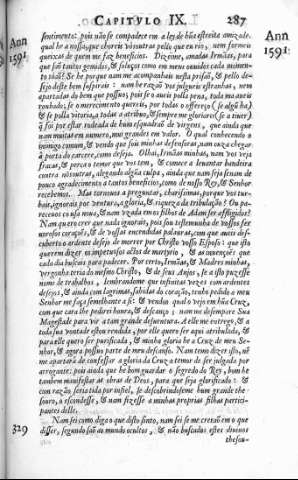 CAPITULO IX.
287
Ann
1591.
Ann
1591.
sentimento: pois não se compadece em a ley de hũa estreita amizade,
qual he a nossa, que choreis vòs outras pello que eu rio, nem formeis
queixas de quem me faz beneficios. Dizeime, amadas Irmãas, para
que sam tantos gemidos, & soluços como em meus ouvidos cada momen-
to soão? Se he porque nam me acompanhais nesta prisaõ, & pello de-
sejo deste bem suspirais: nam he razaõ vos julgueis estranhas, nem
apartadas do bem que possuo; pois se o amais pella pena, toda me aueis
roubado; se o merecimento quereis, por todas o offereço (se algũ ha)
& se polla vitoria, a todas a atribuo,
por estar rodeada de hum esquadraõ de virgens, que ainda que
nam muitas em numero, mui grandes em valor. O qual conhecendo o
inimigo commum, & vendo que sois minhas defensoras, nam ousa chegar
à porta do carcere, como deseja. Olhai, Irmãas minhas, nam vos veja
fracas, & perca o temor que vos tem, & comece a levantar bandeira
contra nòs outras, alegando algũa culpa, ainda que nam seja senam de
pouco agradecimento a tantos beneficios, como de nosso Rey, & Senhor
recebemos. Mas tornemos a preguntar, charissimas, porque vos tur-
bais, ignorais por ventura, a gloria, & riqueza da tribulação? Ou pa-
receuos cousa noua, & nam vzada em os filhos de Adam ser affligidos?
Nam quero crer que nada ignorais, pois sou testemunha de vossos fer-
uerosos coraçoẽs, & de vossas encendidas palauras, com que aueis des-
cuberto o ardente desejo de morrer por Christo vosso Esposo:
querem dizer os impetuosos actos de martyrio, & as inuençoẽs que
cada dia buscais para padecer. Por certo, Irmãas, & Madres minhas,
vergonha teria do mesmo Christo, & de seus Anjos, se a isto puzesse
nome de trabalhos, lembrandome que infinitas vezes com ardentes
desejos, & ainda com lagrimas, sahidas do coração, tenho pedido a meu
Senhor me faça semelhante a si: & vendo a qual o vejo em hũa Cruz,
com que cara lhe pedirei honra, & descanço; nam me desempare Sua
Magestade para vir a tam grande desauentura. A elle me entrego, & a
toda sua vontade estou rendida, por elle quero ser aqui atribulada, &
para elle quero ser purificada, & minha gloria he a Cruz de meu Se-
nhor, & agora possuo parte de meu desejado. Nam temo dizer isto, nẽ
me apartarà de confessar a gloria da Cruz o temor de ser julgado por
arrogante: pois ainda que he bom guardar o segredo do Rey, bom he
tambem manifestar as obras de Deos, para que seja glorificado: &
com razão seria tida por infiel, se descubrindose me hum grande the-
souro, o escondesse, & nam fizesse a minhas proprias filhas partici-
pantes delle.
329
Nam sei como digo o que disto sinto, nam sei se me creraõ em o que
disser, segundo sam os mundos occultos, & não buscados estes divinos
thesou-